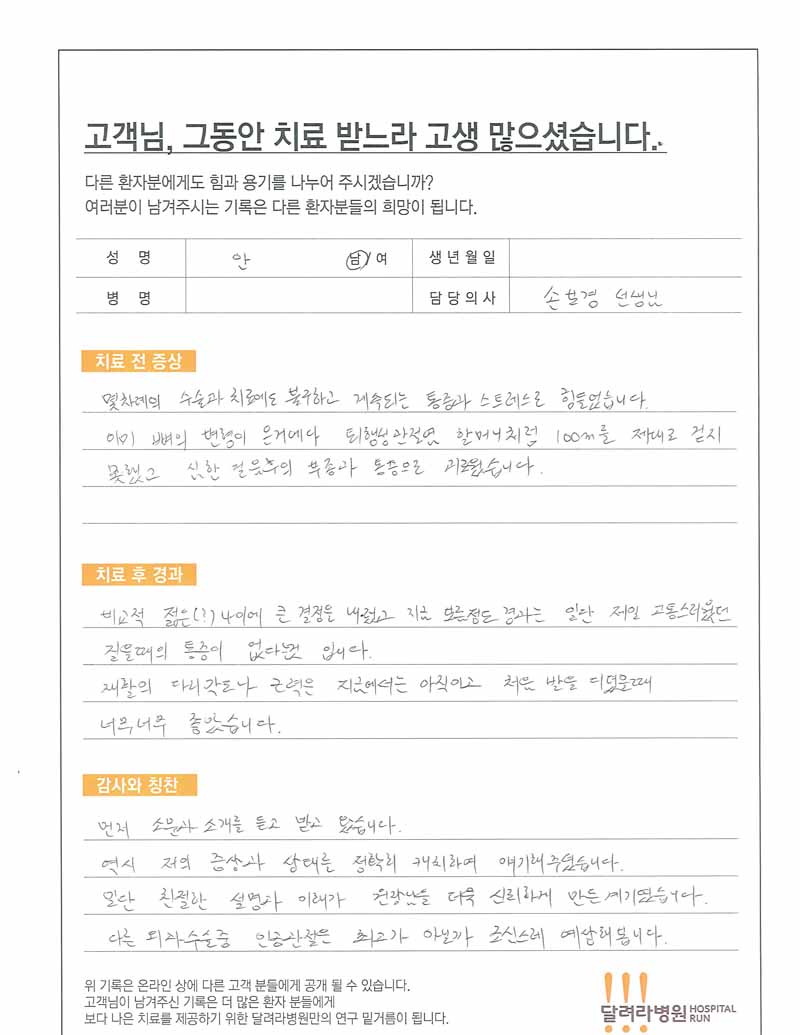 고객님, 그동안 치료 받느라 고생 많으셨습니다.
다른 환자분에게도 힘과 용기를 나누어 주시겠습니까?
여러분이 남겨주시는 기록은 다른 환자분들의 희망이 됩니다.
성 명 안 남/여 생년월일
병 명 담당의사 손보경 선생님
치료 전 증상
몇차례의 수술과 치료에도 불구하고 계속되는 통증과 스트레스로 힘들었습니다.
이미 뼈의 변형이 온거에다 퇴행성관절염 할머니처럼 100m를 제대로 걷지
못했고 심한 걸음후의 부종과 통증으로 괴로웠습니다.
치료 후 경과
비교적 젊은(?) 나이에 큰 결정을 내렸고 지금 보름정도 경과는 일단 제일 고통스러웠던
걸을때의 통증이 없다는것 입니다.
재활의 다리각도나 근력은 지금에서는 아직이고 처음 발을 디뎠을때
너무너무 좋았습니다.
감사와 칭찬
먼저 소문과 소개를 듣고 받고 왔습니다.
역시 저의 증상과 상태를 정확히 캐치하여 얘기해주셨습니다.
일단 친절한 설명과 이해가 원장님을 더욱 신뢰하게 만든 계기였습니다.
다른 외과수술중 인공관절은 최고가 아닐까 조심스레 예상해봅니다.
위 기록은 온라인 상에 다른 고객 분들에게 공개 될 수 있습니다.
고객님이 남겨주신 기록은 더 많은 환자 분들에게
보다 나은 치료를 제공하기 위한 달려라병원만의 연구 밑거름이 됩니다.
달려라병원 HOSPITAL RUN